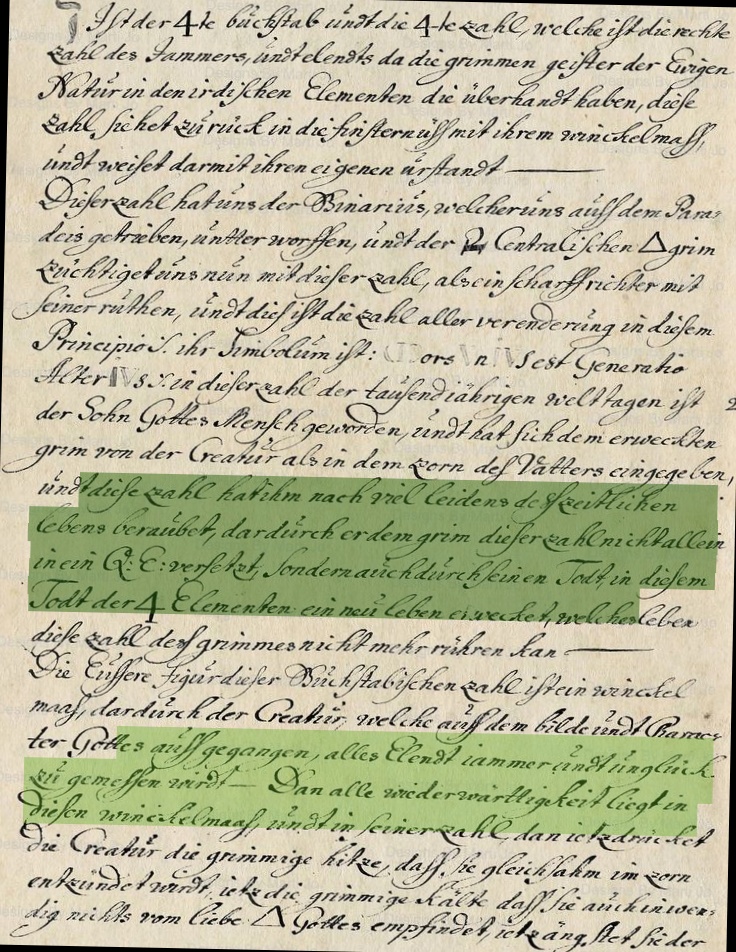 Ist der 4te buchstab undt die 4te zahl, welche ist die rechte
zahl des Jammers, undt elendts da die grimmen geister der Ewigen
Natur in den irdischen Elementen die überhandt haben, diese
zahl siehet zurück in die finsternüss mit ihrem winckelmass,
undt weiset darmit ihren eigenen urstandt —
Dieser zahl hat uns der Binarius, welcher uns auss dem Para:
deis getrieben, untter worffen, undt der Centralischen △ grim
züchtiget uns nun mit dieser zahl, als ein scharffrichter mit
seiner ruthen, undt dies ist die zahl aller verenderung in diesem
Principio S. ihr Simbolum ist: ors n est Generatio
Alter IVs S. in dieser zahl der tausendt iährigen welttagen ist
der Sohn Gottes Mensch geworden, undt hat sich dem erweckten
grim von der Creatur als in dem zorn dess Vatters eingegeben,
undt diese zahl hat ihm nach viel leidens dess zeitlichen
lebens beraubet, dardurch er dem grim dieser zahl nicht allein
in ein Q: E: versetzt, sondern auch durch seinen Todt, in diesem
Todt der 4 Elementen ein neu leben erwecket, welches leben
diese zahl dess grimmes nicht mehr rühren kan —
Die Eussere figur dieser Buchstabischen zahl ist ein winckel
maas, dardurch der Creatur, welche auss dem bilde undt Charac:
ter Gottes auss gegangen, alles Elendt iammer undt unglück
zu gemessen wirdt — Dan alle wiederwärttigkeit liegt in
diesen winckelmaas, undt in seiner zahl, dan ietz drücket
die Creatur die grimmige hitze, dass sie gleichsahm im zorn
entzündet wirdt, ietz die grimmige Kälte dass sie auch inwen:
dig nichts vom liebe △ Gottes empfindet, ietz ängstet sie der